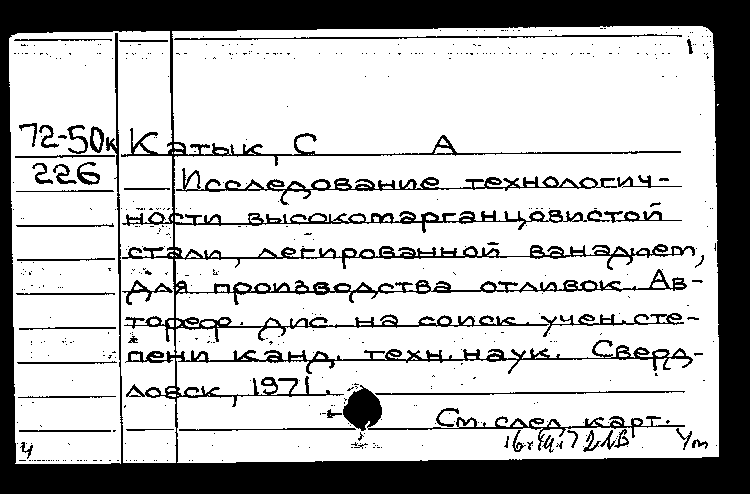 1
72-50к Катык, С А
226 Исследование технологич-
ности высокомарганцовистой
стали, легированной ванадием,
для производства отливок. Ав-
тореф. дис. на соиск. учен. сте-
пени канд. техн. наук. Сверд-
ловск, 1971.
См. след. карт.